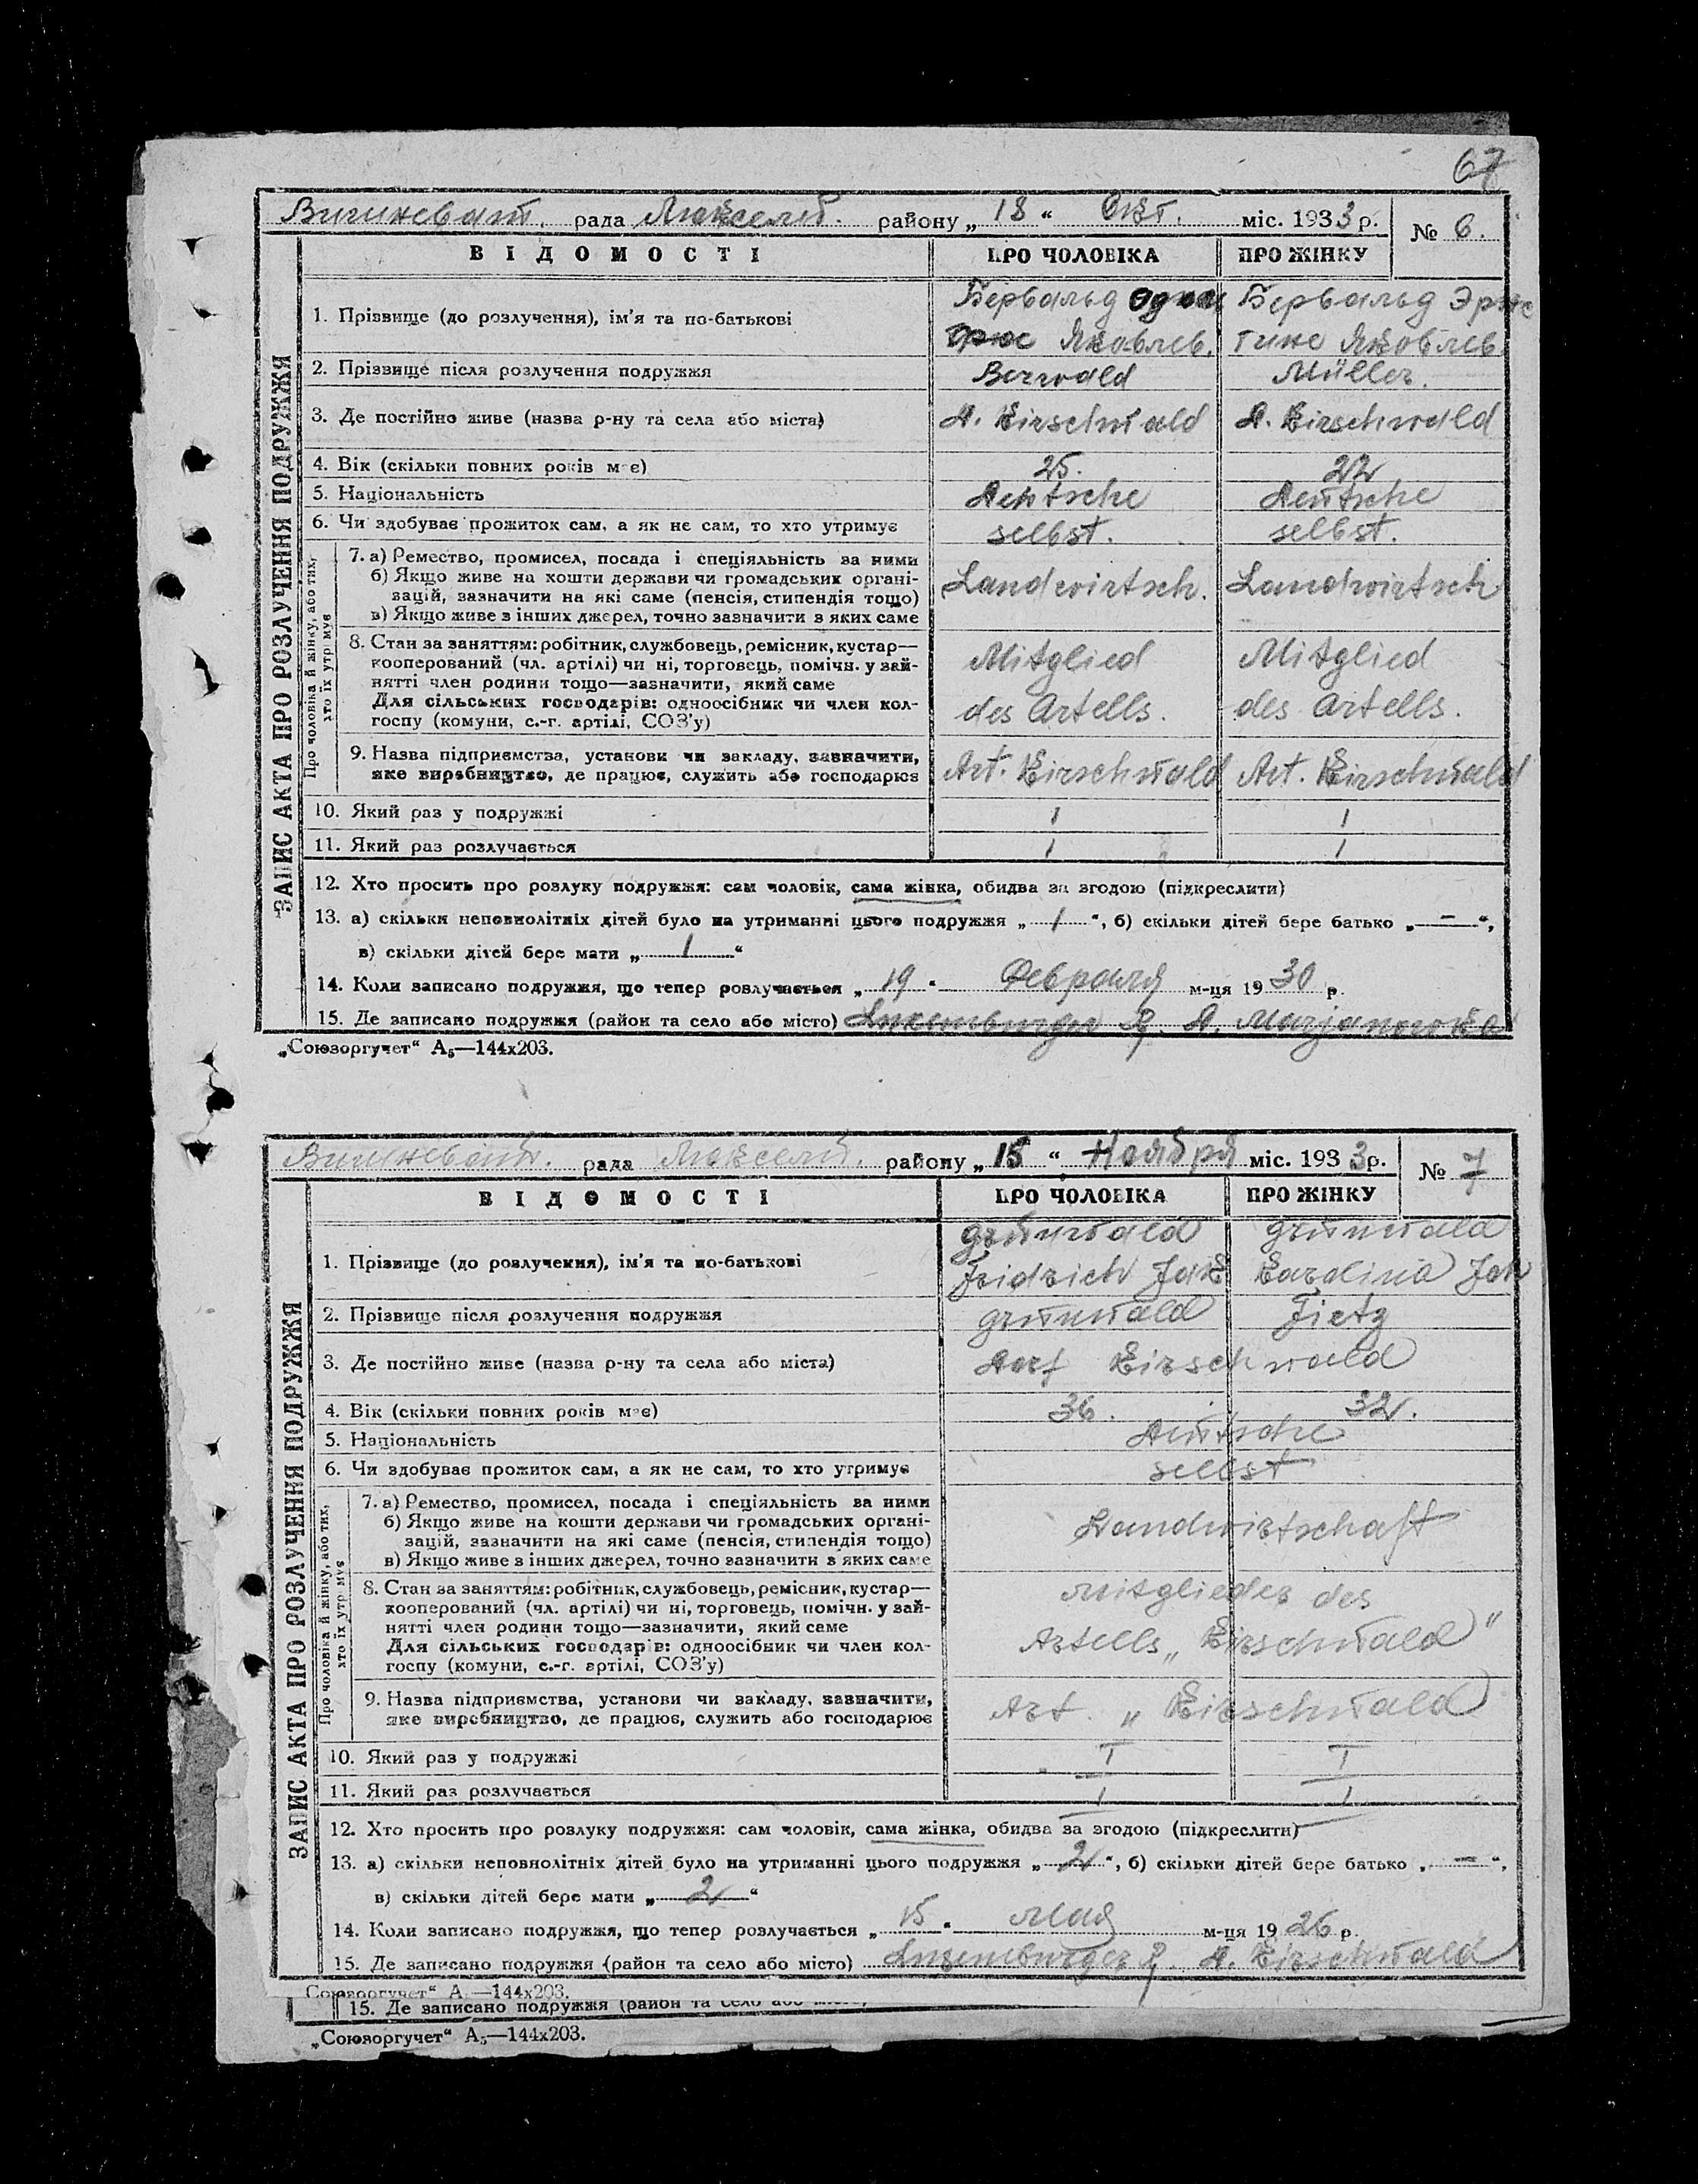 67
Вишневат. рада Люксемб. району „ 18 “ Окт. міс. 1933 р. № 6.
ВІДОМОСТІ ПРО ЧОЛОВІКА ПРО ЖІНКУ
ЗАПИС АКТА ПРО РОЗЛУЧЕННЯ ПОДРУЖЖЯ
Про чоловіка й жінку, або тих, хто їх утримує
1. Прізвище (до розлучення), ім'я та по-батькові Бервальд Яковлев. Бервальд Эрнестине Яковлев.
2. Прізвище після розлучення подружжя Berwald Müller.
3. Де постійно живе (назва р-ну та села або міста) D. Kirschwald D. Kirschwald
4. Вік (скільки повних років має) 25. 22
5. Національність Deutsche Deutsche
6. Чи здобуває прожиток сам, а як не сам, то хто утримує selbst. selbst.
7. а) Ремество, промисел, посада і спеціяльність за ними
б) Якщо живе на кошти держави чи громадських органі-
зацій, зазначити на які саме (пенсія, стипендія тощо) Landwirtsch. Landwirtsch
в) Якщо живе з інших джерел, точно зазначити з яких саме
8. Стан за заняттям: робітник, службовець, ремісник, кустар—
кооперований (чл. артілі) чи ні, торговець, помічн. у зай- Mitglied Mitglied
нятті член родини тощо—зазначити, який саме
Для сільських господарів: одноосібник чи член кол- des Artells. des Artells.
госпу (комуни, с.-г. артілі, СОЗ'у)
9. Назва підприємства, установи чи закладу, зазначити,
яке виробництво, де працює, служить або господарює Art. Kirschwald Art. Kirschwald
10. Який раз у подружжі 1 1
11. Який раз розлучається 1 1
12. Хто просить про розлуку подружжя: сам чоловік, сама жінка, обидва за згодою (підкреслити)
13. а) скільки неповнолітніх дітей було на утриманні цього подружжя „ 1 “, б) скільки дітей бере батько „ — “,
в) скільки дітей бере мати „ 1 “
14. Коли записано подружжя, що тепер розлучається „ 19 “ Февраля м-ця 19 30 р.
15. Де записано подружжя (район та село або місто) Luxemburger R. D. Marjanowka
„Союзоргучет“ А₅—144х203.
Вишневат. рада Люксемб. району „ 15 “ Ноября міс. 1933 р. № 7
ВІДОМОСТІ ПРО ЧОЛОВІКА ПРО ЖІНКУ
ЗАПИС АКТА ПРО РОЗЛУЧЕННЯ ПОДРУЖЖЯ
Про чоловіка й жінку, або тих, хто їх утримує
1. Прізвище (до розлучення), ім'я та по-батькові Grünwald Fridrich Jak Grünwald Karolina Joh
2. Прізвище після розлучення подружжя Grünwald Fietz
3. Де постійно живе (назва р-ну та села або міста) Dorf Kirschwald
4. Вік (скільки повних років має) 36. 32.
5. Національність Deutsche
6. Чи здобуває прожиток сам, а як не сам, то хто утримує selbst
7. а) Ремество, промисел, посада і спеціяльність за ними
б) Якщо живе на кошти держави чи громадських органі- Landwirtschaft
зацій, зазначити на які саме (пенсія, стипендія тощо)
в) Якщо живе з інших джерел, точно зазначити з яких саме
8. Стан за заняттям: робітник, службовець, ремісник, кустар— Mitglieder des
кооперований (чл. артілі) чи ні, торговець, помічн. у зай-
нятті член родини тощо—зазначити, який саме
Для сільських господарів: одноосібник чи член кол- Artells „Kirschwald"
госпу (комуни, с.-г. артілі, СОЗ'у)
9. Назва підприємства, установи чи закладу, зазначити,
яке виробництво, де працює, служить або господарює Art. „Kirschwald"
10. Який раз у подружжі I I
11. Який раз розлучається 1 1
12. Хто просить про розлуку подружжя: сам чоловік, сама жінка, обидва за згодою (підкреслити)
13. а) скільки неповнолітніх дітей було на утриманні цього подружжя „ 2 “, б) скільки дітей бере батько „ — “,
в) скільки дітей бере мати „ 2 “
14. Коли записано подружжя, що тепер розлучається „ 15 “ Мая м-ця 19 26 р.
15. Де записано подружжя (район та село або місто) Luxemburger R. D. Kirschwald
Союзоргучет“ А —144х203.
15. Де записано подружжя (район та село або місто)
„Союзоргучет“ А₅—144х203.